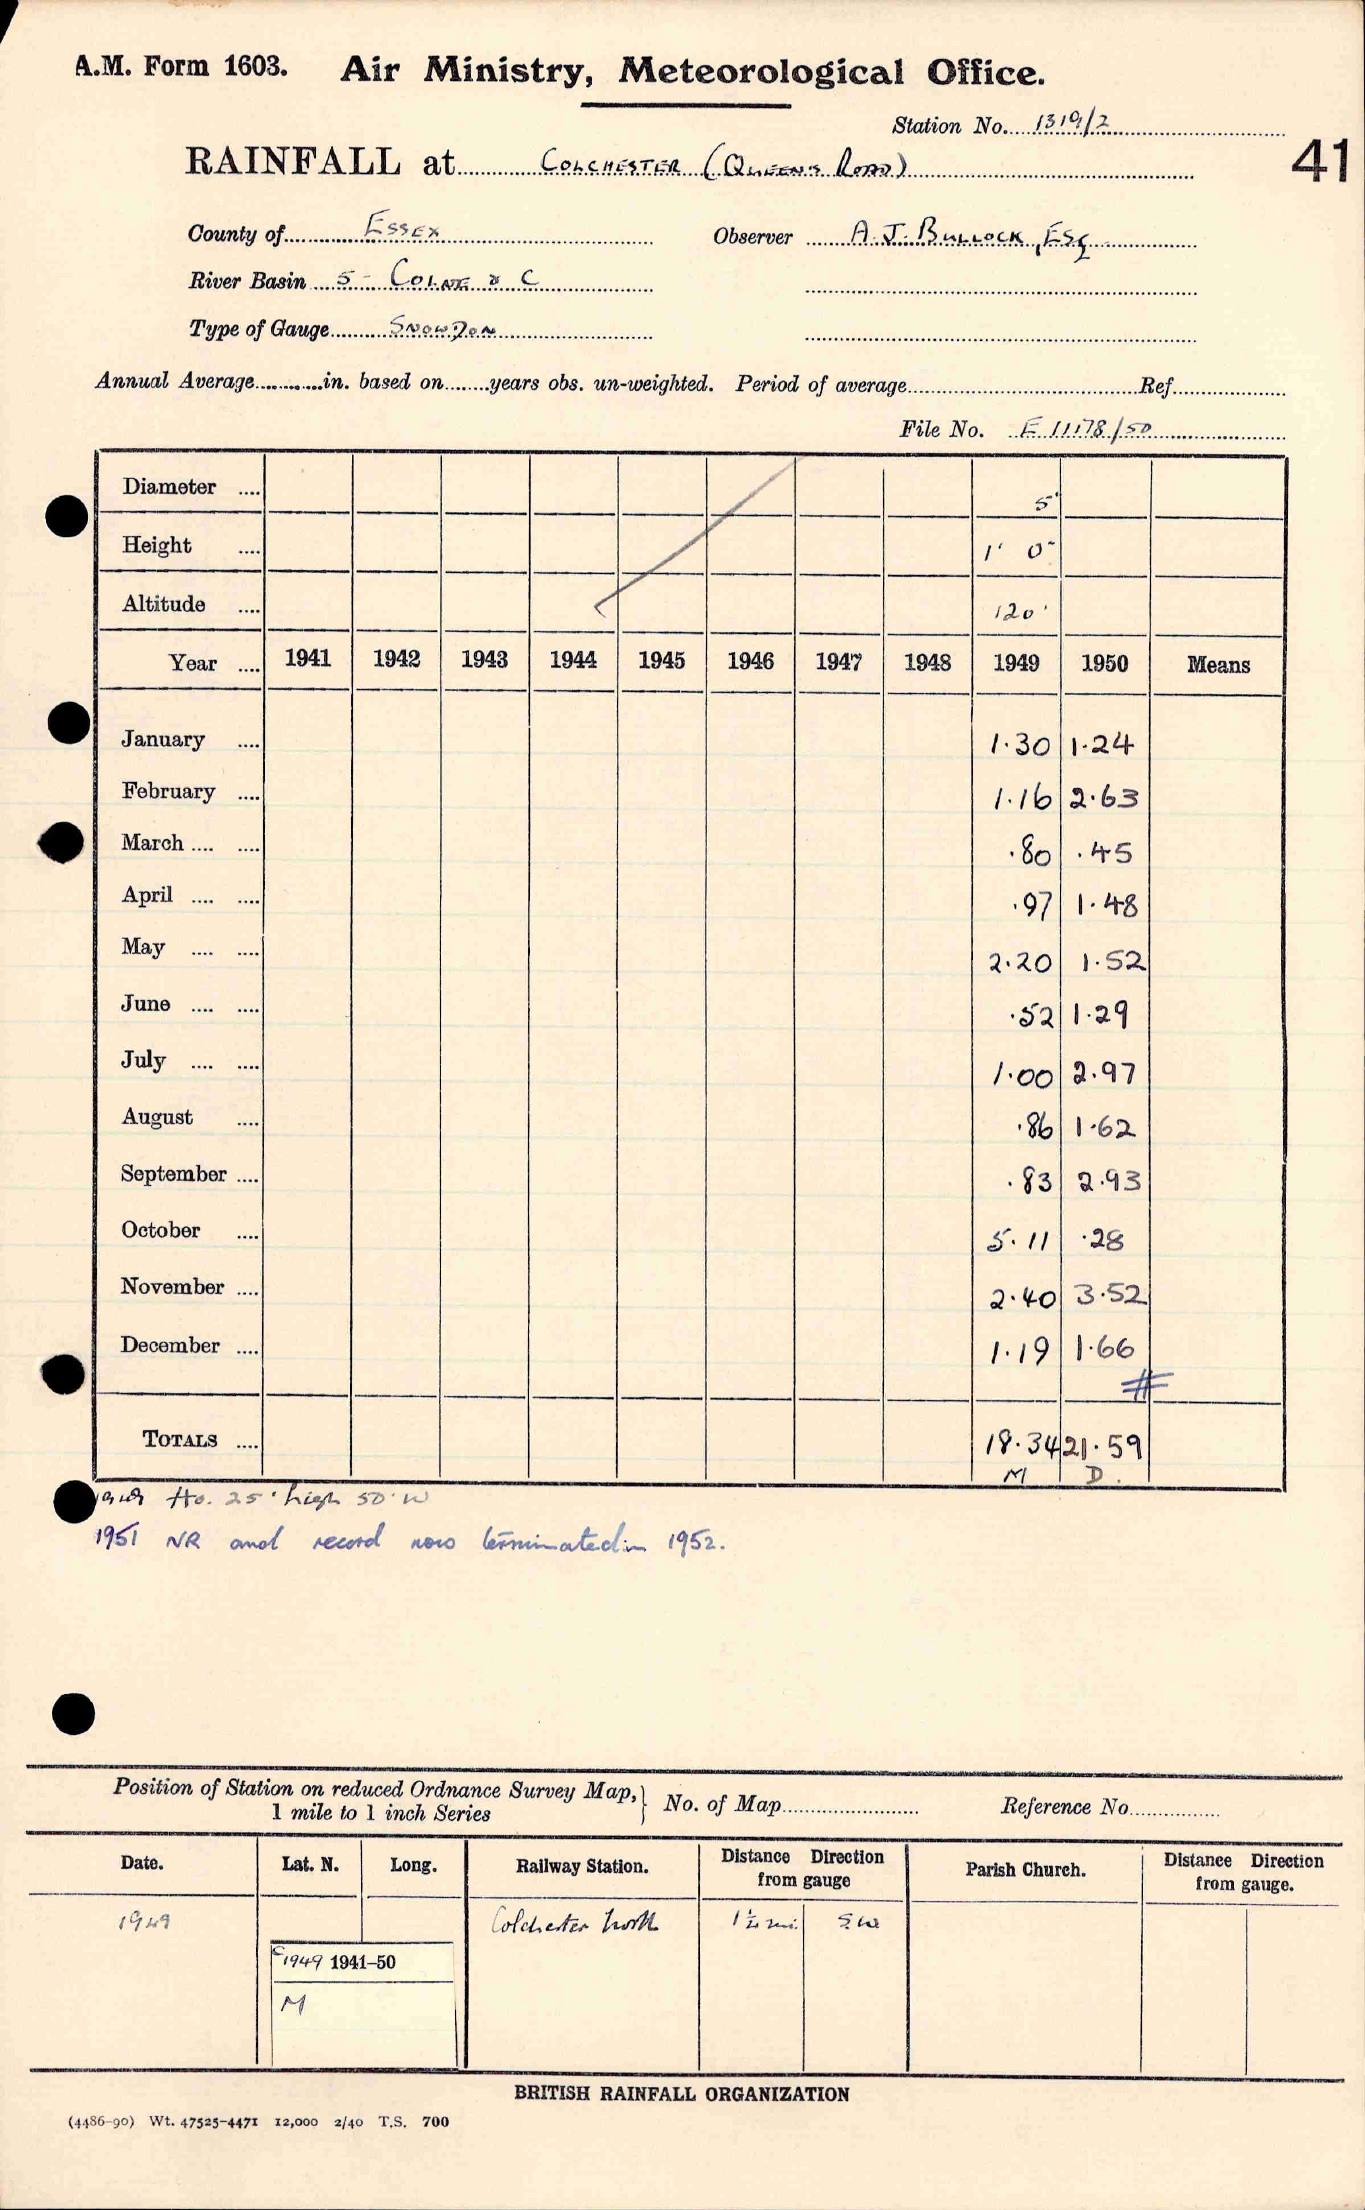 A.M. Form 1603. Air Ministry, Meteorological Office.
Station No. 1319/2
RAINFALL at COLCHESTER (QUEEN'S ROAD)
41
County of ESSEX Observer A. J. BULLOCK, ESQ
River Basin 5 - COLNE & C
Type of Gauge SNOWDON
Annual Average in. based on years obs. un-weighted. Period of average Ref.
File No. E 11178/50
Diameter 5"
Height 1' 0"
Altitude 120'
Year 1941 1942 1943 1944 1945 1946 1947 1948 1949 1950 Means
January 1.30 1.24
February 1.16 2.63
March .80 .45
April .97 1.48
May 2.20 1.52
June .52 1.29
July 1.00 2.97
August .86 1.62
September .83 2.93
October 5.11 .28
November 2.40 3.52
December 1.19 1.66
#
TOTALS 18.34 21.59
M D.
1949 Ho. 25' high 50' W
1951 NR and record now terminated in 1952.
Position of Station on reduced Ordnance Survey Map, 1 mile to 1 inch Series } No. of Map Reference No.
Date. Lat. N. Long. Railway Station. Distance Direction from gauge Parish Church. Distance Direction from gauge.
1949 Colchester North 1¼ mi S.W
c1949 1941–50
M
BRITISH RAINFALL ORGANIZATION
(4486-90) Wt. 47525-4471 12,000 2/40 T.S. 700